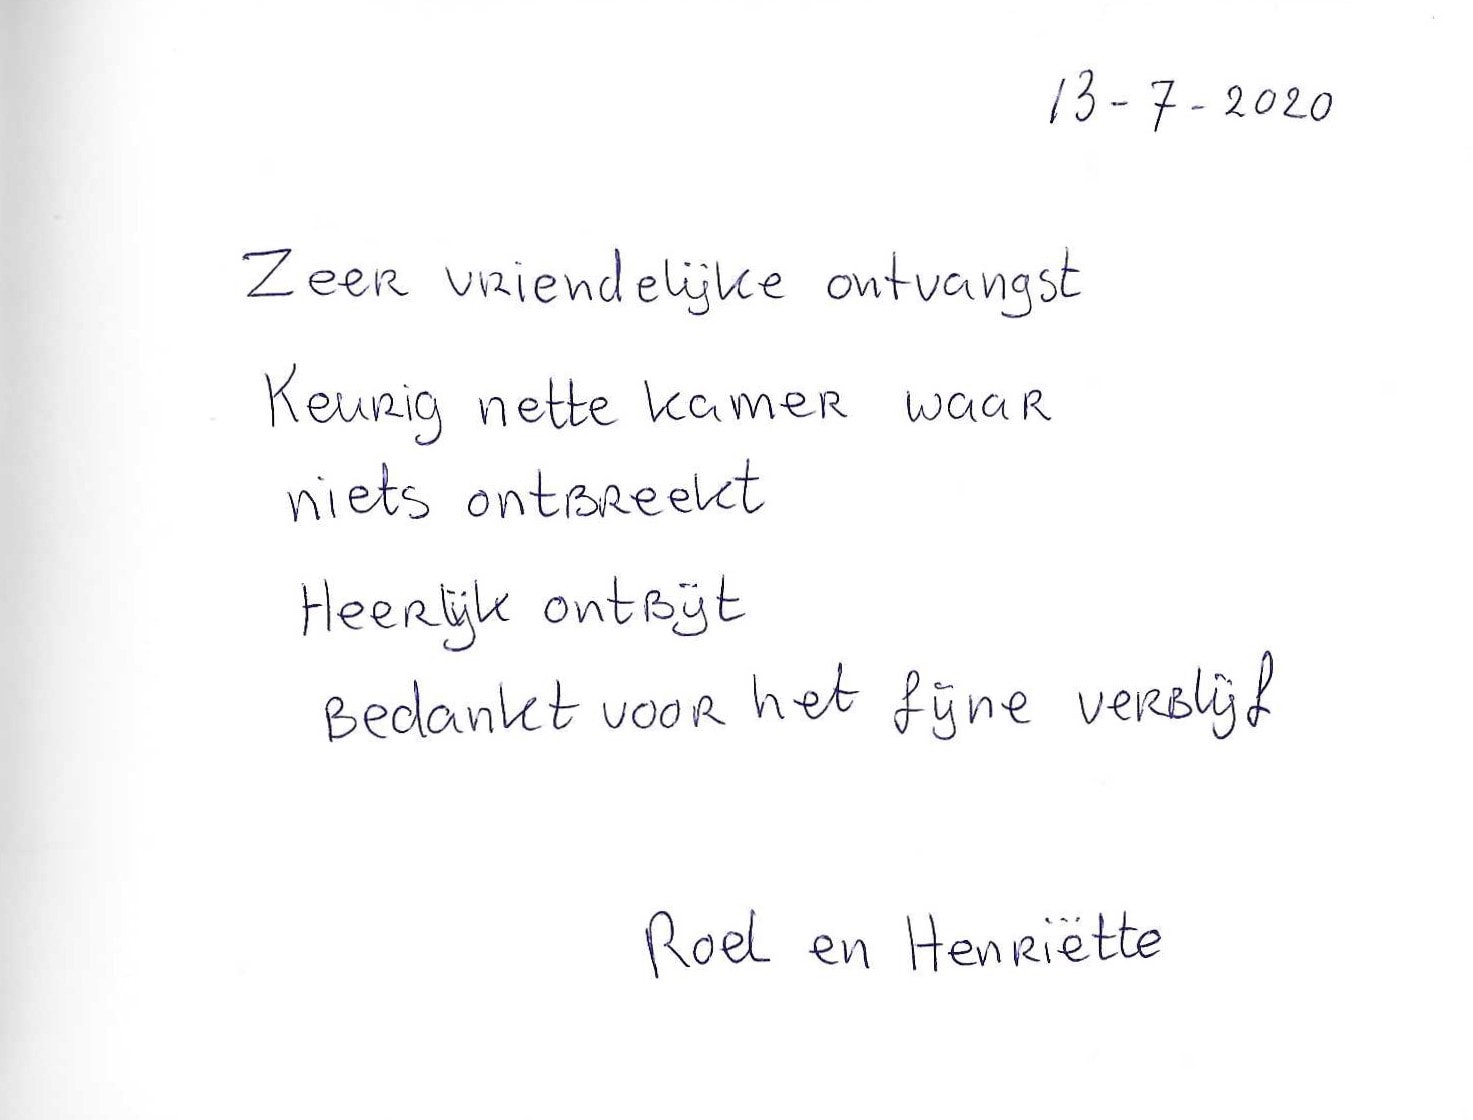 13-7-2020
Zeer vriendelijke ontvangst
Keurig nette kamer waar
niets ontbreekt
Heerlijk ontbijt
Bedankt voor het fijne verblijf
Roel en Henriëtte